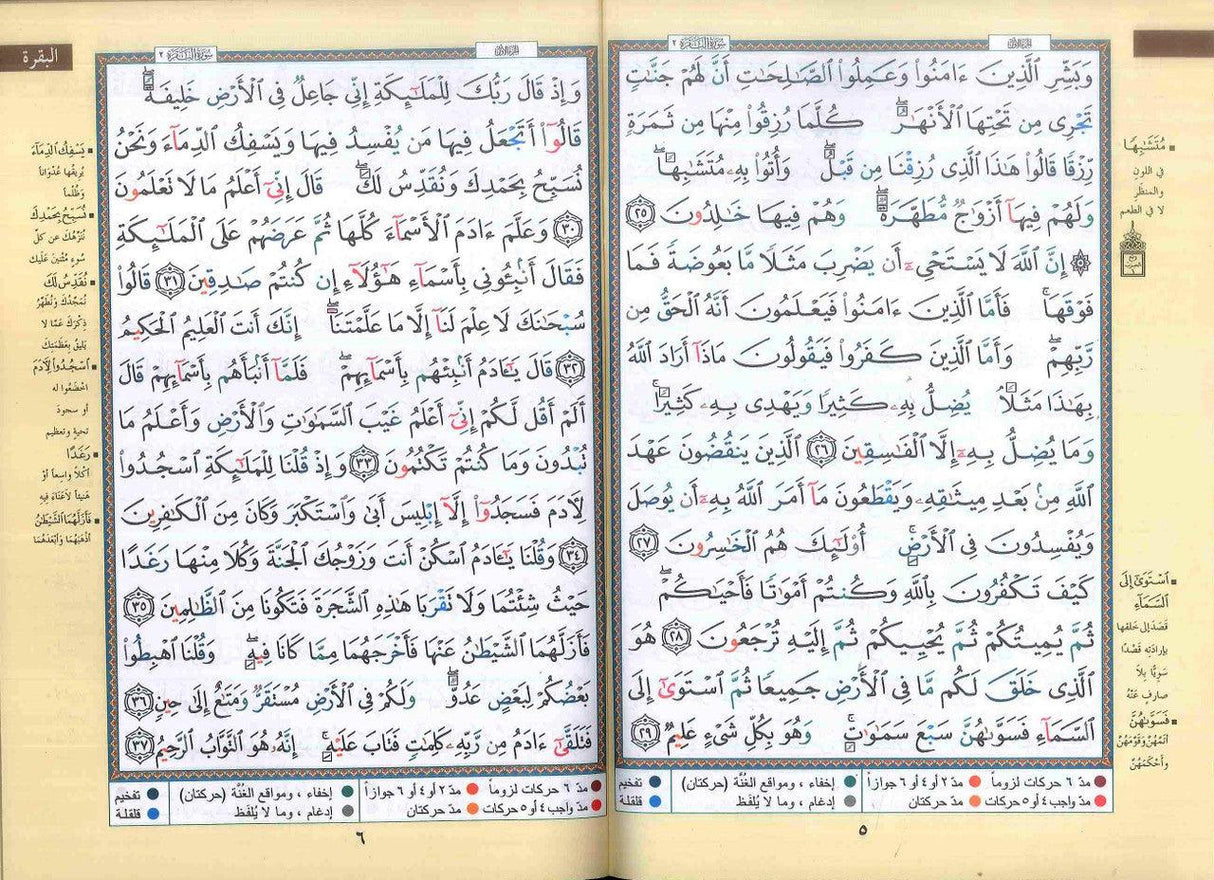 الجزء الأول
سورة البقرة ٢
وَبَشِّرِ الَّذِينَ ءَامَنُوا۟ وَعَمِلُوا۟ الصَّـٰلِحَـٰتِ أَنَّ لَهُمْ جَنَّـٰتٍ
تَجْرِى مِن تَحْتِهَا الْأَنْهَـٰرُ ۖ كُلَّمَا رُزِقُوا۟ مِنْهَا مِن ثَمَرَةٍ
رِّزْقًا قَالُوا۟ هَـٰذَا الَّذِى رُزِقْنَا مِن قَبْلُ ۖ وَأُتُوا۟ بِهِۦ مُتَشَـٰبِهًا ۖ
وَلَهُمْ فِيهَآ أَزْوَٰجٌ مُّطَهَّرَةٌ ۖ وَهُمْ فِيهَا خَـٰلِدُونَ ٢٥
۞ إِنَّ اللَّهَ لَا يَسْتَحْىِۦٓ أَن يَضْرِبَ مَثَلًا مَّا بَعُوضَةً فَمَا
فَوْقَهَا ۚ فَأَمَّا الَّذِينَ ءَامَنُوا۟ فَيَعْلَمُونَ أَنَّهُ الْحَقُّ مِن
رَّبِّهِمْ ۖ وَأَمَّا الَّذِينَ كَفَرُوا۟ فَيَقُولُونَ مَاذَآ أَرَادَ اللَّهُ
بِهَـٰذَا مَثَلًا ۘ يُضِلُّ بِهِۦ كَثِيرًا وَيَهْدِى بِهِۦ كَثِيرًا ۚ
وَمَا يُضِلُّ بِهِۦٓ إِلَّا الْفَـٰسِقِينَ ٢٦ الَّذِينَ يَنقُضُونَ عَهْدَ
اللَّهِ مِنۢ بَعْدِ مِيثَـٰقِهِۦ وَيَقْطَعُونَ مَآ أَمَرَ اللَّهُ بِهِۦٓ أَن يُوصَلَ
وَيُفْسِدُونَ فِى الْأَرْضِ ۚ أُو۟لَـٰٓئِكَ هُمُ الْخَـٰسِرُونَ ٢٧
كَيْفَ تَكْفُرُونَ بِاللَّهِ وَكُنتُمْ أَمْوَٰتًا فَأَحْيَـٰكُمْ ۖ
ثُمَّ يُمِيتُكُمْ ثُمَّ يُحْيِيكُمْ ثُمَّ إِلَيْهِ تُرْجَعُونَ ٢٨ هُوَ
الَّذِى خَلَقَ لَكُم مَّا فِى الْأَرْضِ جَمِيعًا ثُمَّ اسْتَوَىٰٓ إِلَى
السَّمَآءِ فَسَوَّىٰهُنَّ سَبْعَ سَمَـٰوَٰتٍ ۚ وَهُوَ بِكُلِّ شَىْءٍ عَلِيمٌ ٢٩
مُتَشَـٰبِهًا
في اللون
والمنظر
لا في الطعم
اسْتَوَىٰٓ إِلَى
السَّمَآءِ
قَصَدَ إلى خلقها
بإرادته قَصْدًا
سَوِيًّا بلا
صارفٍ عَنْهُ
فَسَوَّىٰهُنَّ
أتَمَّهُنَّ وقَوَّمَهُنَّ
وأحْكَمَهُنَّ
مدّ ٦ حركات لزوماً مدّ ٢ أو ٤ أو ٦ جوازاً إخفاء ، ومواقع الغُنَّة (حركتان) تفخيم
مدّ واجب ٤ أو ٥ حركات مدّ حركتان إدغام ، وما لا يُلفَظ قلقلة
٥
الجزء الأول
سورة البقرة ٢
البقرة
وَإِذْ قَالَ رَبُّكَ لِلْمَلَـٰٓئِكَةِ إِنِّى جَاعِلٌ فِى الْأَرْضِ خَلِيفَةً ۖ
قَالُوٓا۟ أَتَجْعَلُ فِيهَا مَن يُفْسِدُ فِيهَا وَيَسْفِكُ الدِّمَآءَ وَنَحْنُ
نُسَبِّحُ بِحَمْدِكَ وَنُقَدِّسُ لَكَ ۖ قَالَ إِنِّىٓ أَعْلَمُ مَا لَا تَعْلَمُونَ
٣٠ وَعَلَّمَ ءَادَمَ الْأَسْمَآءَ كُلَّهَا ثُمَّ عَرَضَهُمْ عَلَى الْمَلَـٰٓئِكَةِ
فَقَالَ أَنۢبِـُٔونِى بِأَسْمَآءِ هَـٰٓؤُلَآءِ إِن كُنتُمْ صَـٰدِقِينَ ٣١ قَالُوا۟
سُبْحَـٰنَكَ لَا عِلْمَ لَنَآ إِلَّا مَا عَلَّمْتَنَآ ۖ إِنَّكَ أَنتَ الْعَلِيمُ الْحَكِيمُ
٣٢ قَالَ يَـٰٓـَٔادَمُ أَنۢبِئْهُم بِأَسْمَآئِهِمْ ۖ فَلَمَّآ أَنۢبَأَهُم بِأَسْمَآئِهِمْ قَالَ
أَلَمْ أَقُل لَّكُمْ إِنِّىٓ أَعْلَمُ غَيْبَ السَّمَـٰوَٰتِ وَالْأَرْضِ وَأَعْلَمُ مَا
تُبْدُونَ وَمَا كُنتُمْ تَكْتُمُونَ ٣٣ وَإِذْ قُلْنَا لِلْمَلَـٰٓئِكَةِ اسْجُدُوا۟
لِـَٔادَمَ فَسَجَدُوٓا۟ إِلَّآ إِبْلِيسَ أَبَىٰ وَاسْتَكْبَرَ وَكَانَ مِنَ الْكَـٰفِرِينَ
٣٤ وَقُلْنَا يَـٰٓـَٔادَمُ اسْكُنْ أَنتَ وَزَوْجُكَ الْجَنَّةَ وَكُلَا مِنْهَا رَغَدًا
حَيْثُ شِئْتُمَا وَلَا تَقْرَبَا هَـٰذِهِ الشَّجَرَةَ فَتَكُونَا مِنَ الظَّـٰلِمِينَ ٣٥
فَأَزَلَّهُمَا الشَّيْطَـٰنُ عَنْهَا فَأَخْرَجَهُمَا مِمَّا كَانَا فِيهِ ۖ وَقُلْنَا اهْبِطُوا۟
بَعْضُكُمْ لِبَعْضٍ عَدُوٌّ ۖ وَلَكُمْ فِى الْأَرْضِ مُسْتَقَرٌّ وَمَتَـٰعٌ إِلَىٰ حِينٍ ٣٦
فَتَلَقَّىٰٓ ءَادَمُ مِن رَّبِّهِۦ كَلِمَـٰتٍ فَتَابَ عَلَيْهِ ۚ إِنَّهُۥ هُوَ التَّوَّابُ الرَّحِيمُ ٣٧
يَسْفِكُ الدِّمَآءَ
يُريقُها عُدْوَاناً
وَظُلْماً
نُسَبِّحُ بِحَمْدِكَ
نُنَزِّهُكَ عن كلِّ
سُوءٍ مُثْنِينَ عَلَيْك
نُقَدِّسُ لَكَ
نُمَجِّدُكَ ونُطَهِّرُ
ذِكْرَكَ عَمَّا لا
يَلِيقُ بِعَظَمَتِكَ
اسْجُدُوا۟ لِـَٔادَمَ
اخضَعُوا له
أو سجودَ
تحيةٍ وتعظيم
رَغَدًا
أكلاً واسعاً أوْ
هَنِيئاً لا عَنَاءَ فِيهِ
فَأَزَلَّهُمَا الشَّيْطَـٰنُ
أذْهَبَهُمَا وَأبْعَدَهُمَا
مدّ ٦ حركات لزوماً مدّ ٢ أو ٤ أو ٦ جوازاً إخفاء ، ومواقع الغُنَّة (حركتان) تفخيم
مدّ واجب ٤ أو ٥ حركات مدّ حركتان إدغام ، وما لا يُلفَظ قلقلة
٦